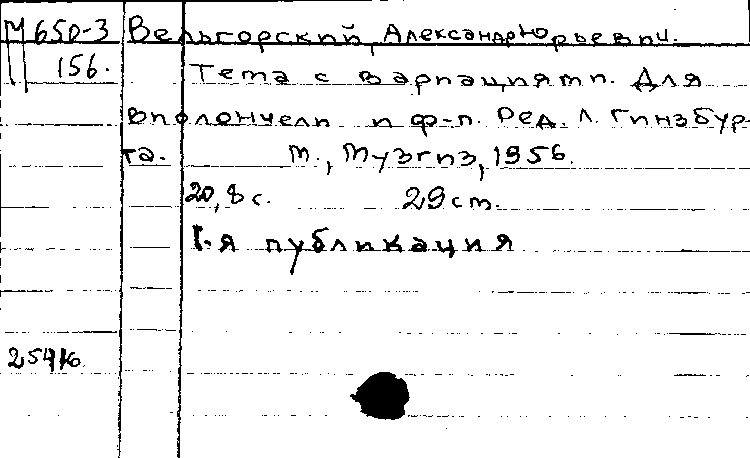 М 650-3 Вельгорский, Александр Юрьевич.
156. Тема с вариациями. Для
виолончели и ф-п. Ред. Л. Гинзбур-
га. М., Музгиз, 1956.
20, 8 с. 29 см.
I-я публикация